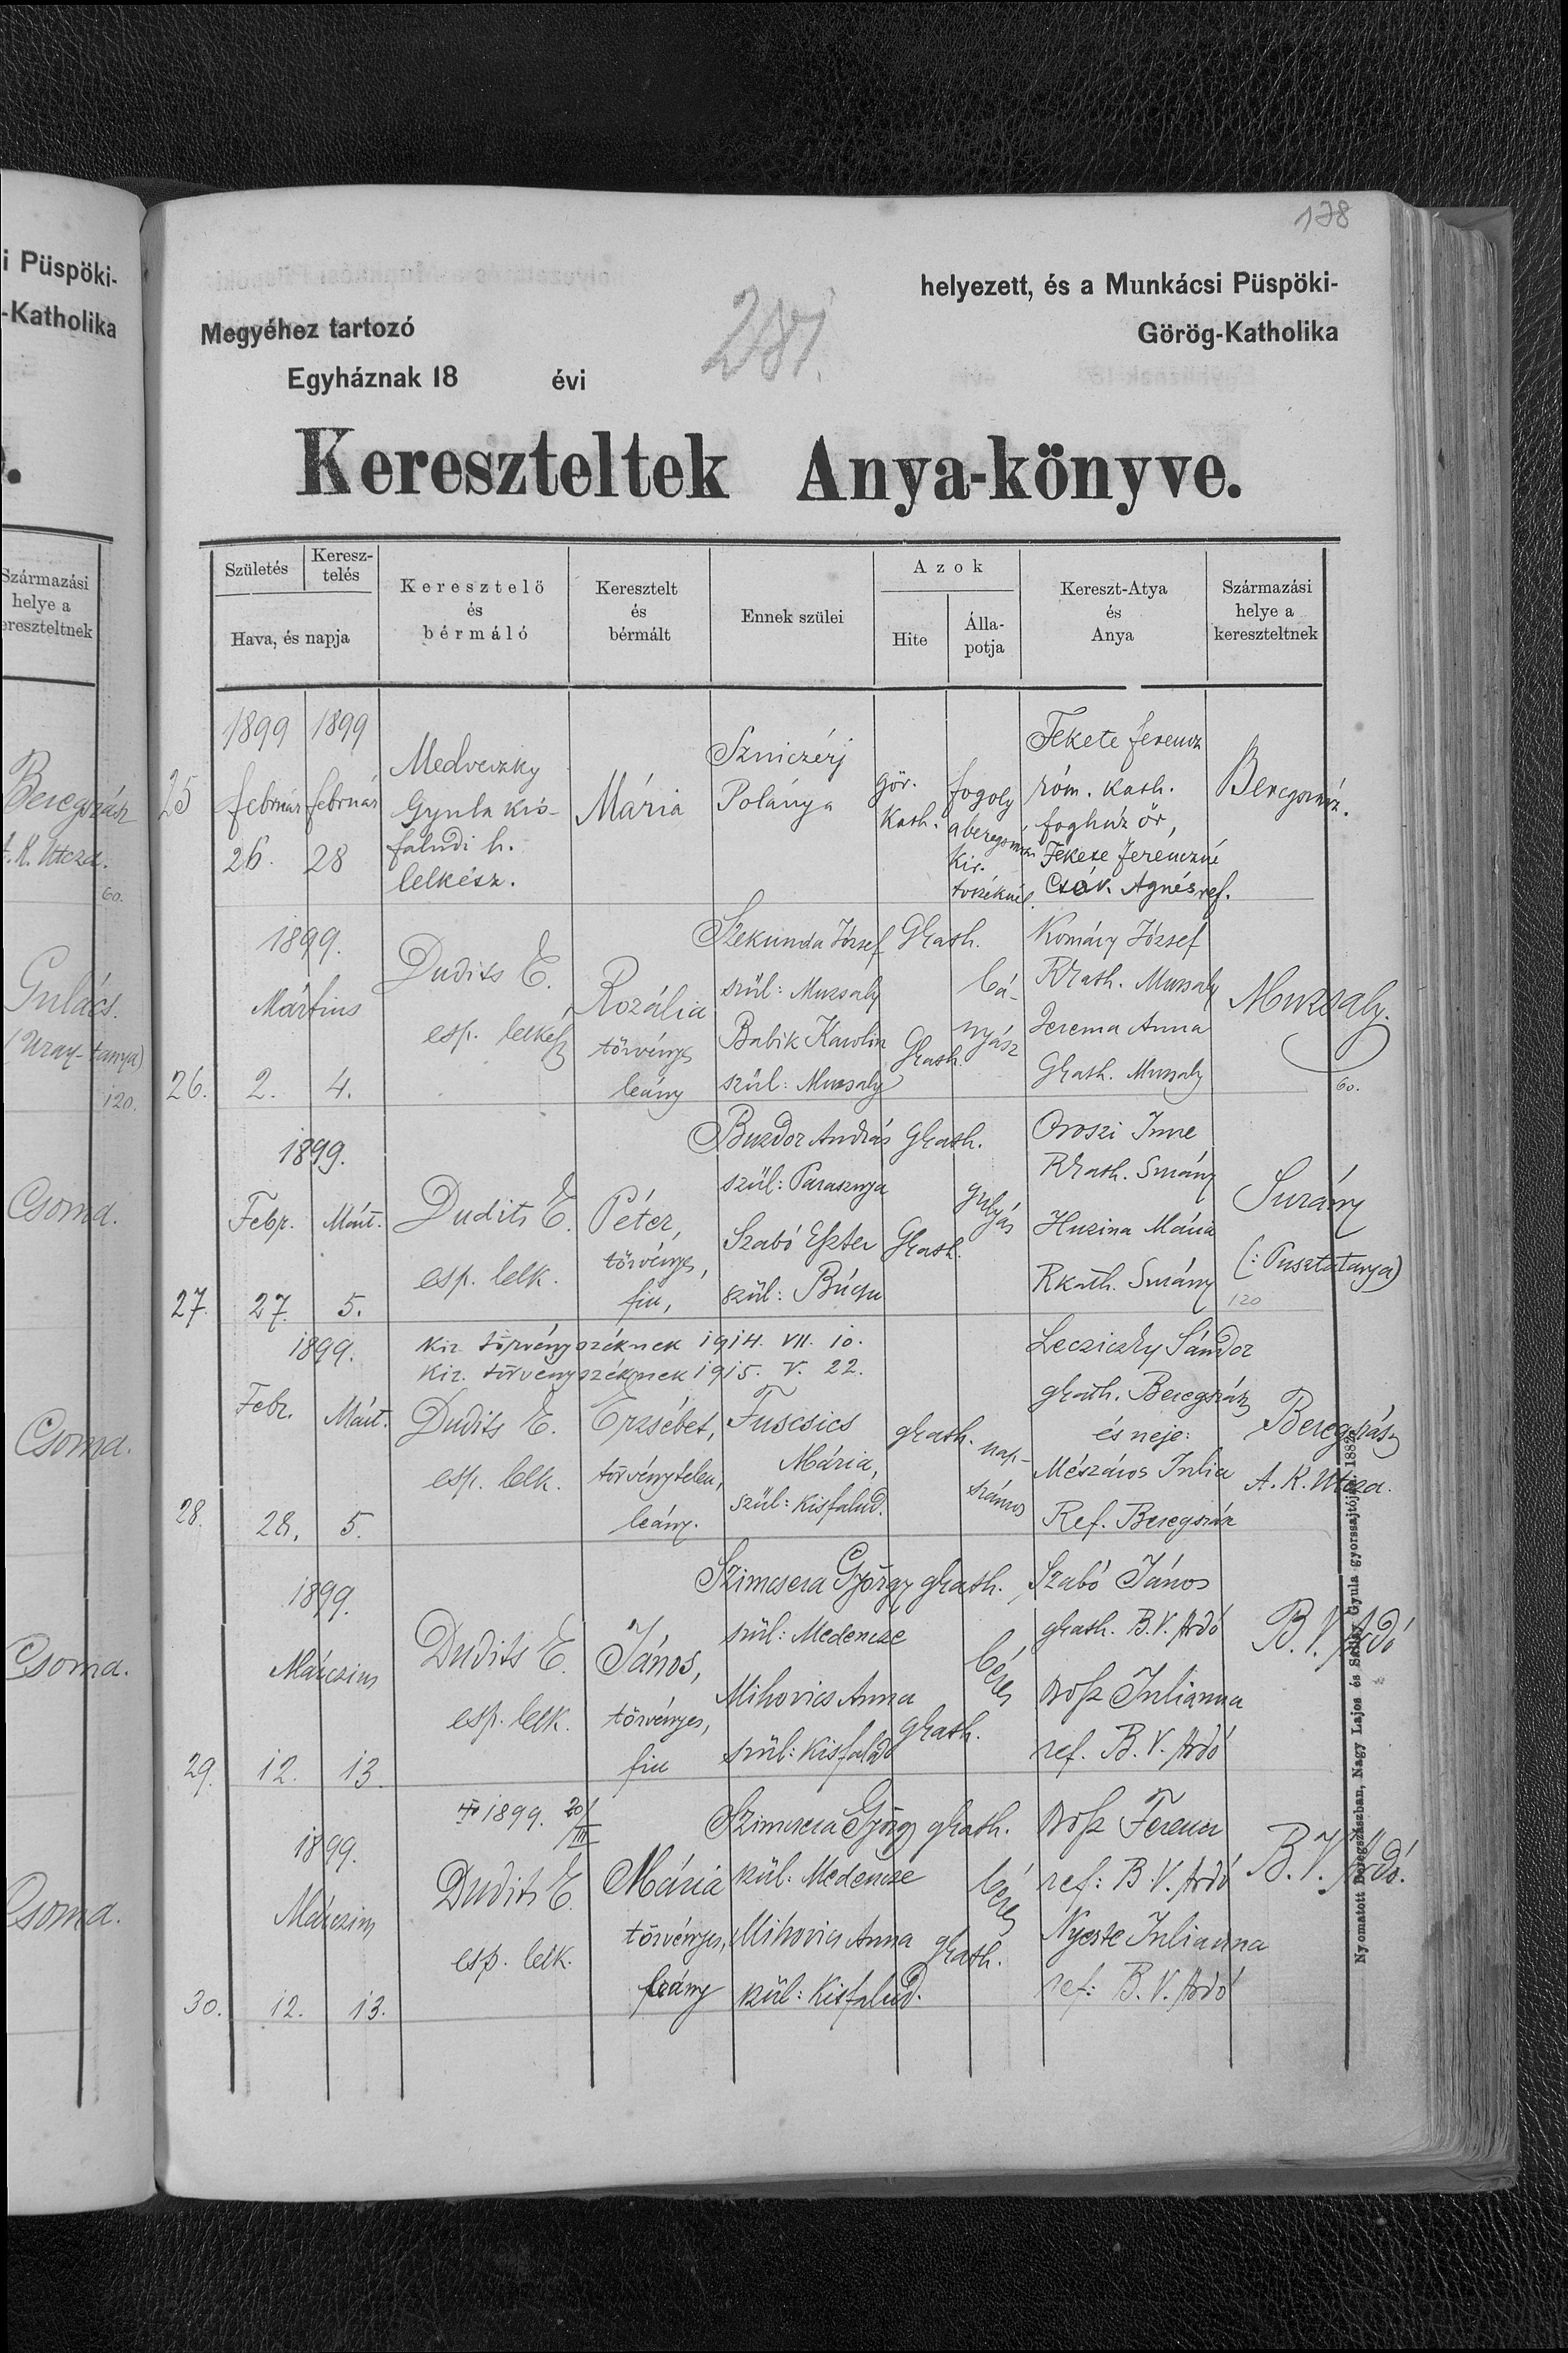 i Püspöki-
-Katholika
Származási
helye a
ereszteltnek
Beregszász
A. K. Utcza.
60.
Gulács.
(Uray-tanya)
120.
Csoma.
Csoma.
Csoma.
Csoma.
178
helyezett, és a Munkácsi Püspöki-
Megyéhez tartozó
Görög-Katholika
Egyháznak 18 évi
281.
Kereszteltek Anya-könyve.
Születés
Keresz-
telés
Hava, és napja
Keresztelö
és
bérmáló
Keresztelt
és
bérmált
Ennek szülei
Azok
Hite
Álla-
potja
Kereszt-Atya
és
Anya
Származási
helye a
kereszteltnek
25
1899 1899
február február
26. 28
Medveczky
Gyula kis-
faludi h.
lelkész.
Mária
Szniczérj
Polánya
gör.
kath.
fogoly
a beregszászi
kir.
tvszéknél.
Fekete Ferencz
róm. kath.
fogház őr,
Fekete Ferenczné
Ágnés ref.
Beregszász.
26.
1899.
Mártius
2. 4.
Dudits E.
esp. lelkész
Rozália
törvénys
leány
Szekunda József
szül: Muzsaly
Babik Karolin
szül: Muzsaly
Gkath.
Gkath.
bá-
nyász
Komáry József
Rkath. Muzsaly
Jerema Anna
Gkath. Muzsaly
Muzsaly.
60.
27.
1899.
Febr. Márt.
27. 5.
Dudits E.
esp. lelk.
Péter,
törvénys,
fiu,
Buzdor András
szül: Parasznya
Szabó Eszter
szül: Búcsu
Gkath.
Gkath.
gulyás
Oroszi Imre
Rkath. Surány
Huzina Mária
Rkath. Surány
Surány
(: Pusztatanya)
120
28.
1899.
Febr. Márt.
28. 5.
Kir. törvényszéknek 1914. VII. 10.
Kir. törvényszéknek 1915. V. 22.
Dudits E.
esp. lelk.
Erzsébet,
törvénytelen,
leány.
Fuscsics
Mária,
szül: Kisfalud.
gkath.
nap-
számos
Lecziczky Sándor
gkath. Beregszász
és neje:
Mészáros Julia
Ref. Beregszász
Beregszász
A. K. Utcza.
29.
1899.
Márczius
12. 13.
Dudits E.
esp. lelk.
János,
törvényes,
fiu
Szimcsera György
szül: Medencze
Mihovics Anna
szül: Kisfalud
gkath.
gkath.
béres
Szabó János
gkath. B.V. Ardó
Julianna
ref. B.V. Ardó
B.V. Ardó
30.
1899.
Márczius
12. 13.
1899. 20/III
Dudits E.
esp. lelk.
Mária
törvényes,
leány
Szimcsera György
szül: Medencze
Mihovics Anna
szül: Kisfalud.
gkath.
gkath.
béres
Ferencz
ref: B.V. Ardó
Nyeste Julianna
ref: B.V. Ardó
B.V. Ardó.
Nyomatott Beregszászban, Nagy Lajos és Gyula gyorssajtóján 188